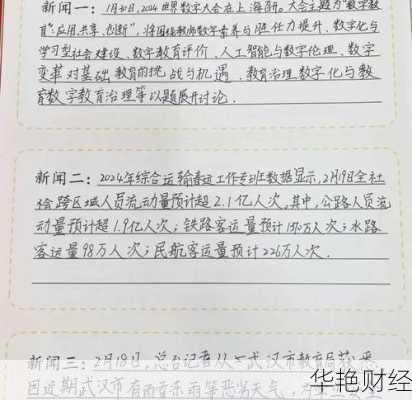 新闻一：1月30日，2024世界数字大会在上海开。大会主题为"数字教
育：应用、共享、创新"，将围绕教师数字素养与胜任力提升、数字化与
学习型社会建设、数字教育评价、人工智能与数字伦理、数字
变革对基础教育的挑战与机遇、教育治理数字化与数
育数字教育治理等议题展开讨论.
新闻二：2024年综合运输春运工作专班数据显示，2月19日全社
会跨区域人员流动量预计超2.1亿人次，其中，公路人员流
动量预计超1.9亿人次；铁路客运量预计万人次；水路
客运量98万人次；民航客运量预计226万人次.
新闻三：2月18日，总台记者从武汉市教育局获悉
因近期武汉市有雨雪冻雨等恶劣天气，为
华艳财经